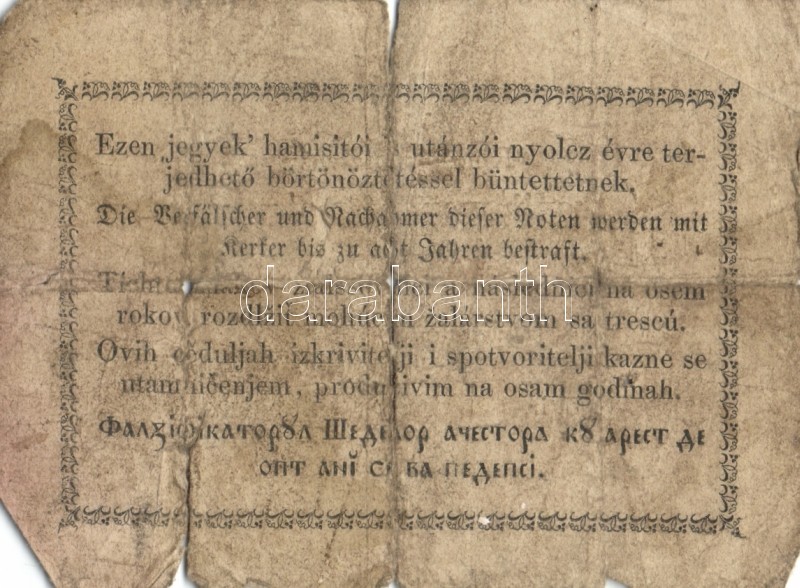 Ezen jegyek' hamisitói utánzói nyolcz évre ter-
jedhető börtönöztetéssel büntettetnek.
Die Verfälscher und Nachahmer dieser Noten werden mit
Kerker bis zu acht Jahren bestraft.
na osem
rokov rozdĺžit žalárstvom sa trescú.
Ovih ceduljah izkrivitelji i spotvoritelji kazne se
utamničenjem, produživim na osam godinah.
Фалзіфікаторꙋл Шеделор ачестора кꙋ арест де
опт ані ва педепсі.
darabanth